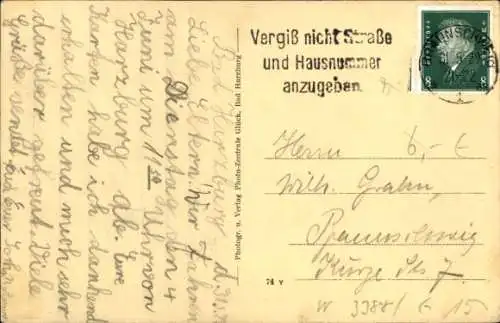 Bad Harzburg d. 31.5.
Liebe Eltern! Wir fahren
am Dienstag den 4
Juni um 11 Uhr von
Harzburg ab. Eure
Karten habe ich dankend
erhalten und mich sehr
darüber gefreut. Viele
Grüße sendet auch Euer
Photogr. u. Verlag Photo-Zentrale Glück, Bad Harzburg
Vergiß nicht Straße
und Hausnummer
anzugeben.
Herrn
Wilh. Grahn,
Braunschweig
Kurze Str 7.
74 v
6,- €
W 3388/ € 15